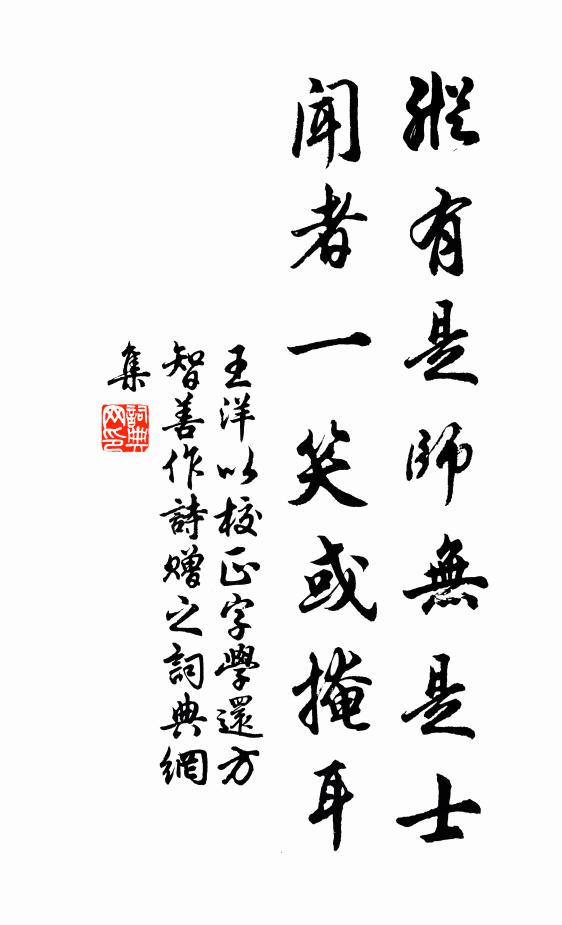 縱有是師無是士
聞者一笑或掩耳
王洋以校正字學還方
智善作詩贈之詞典網
集
詞典网印